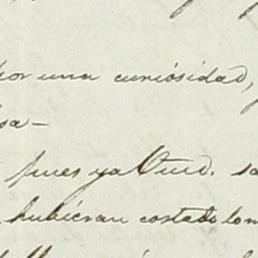 por una curiósidad,
sa—
pues ya Vmd. sa
hubiéran costado lo m